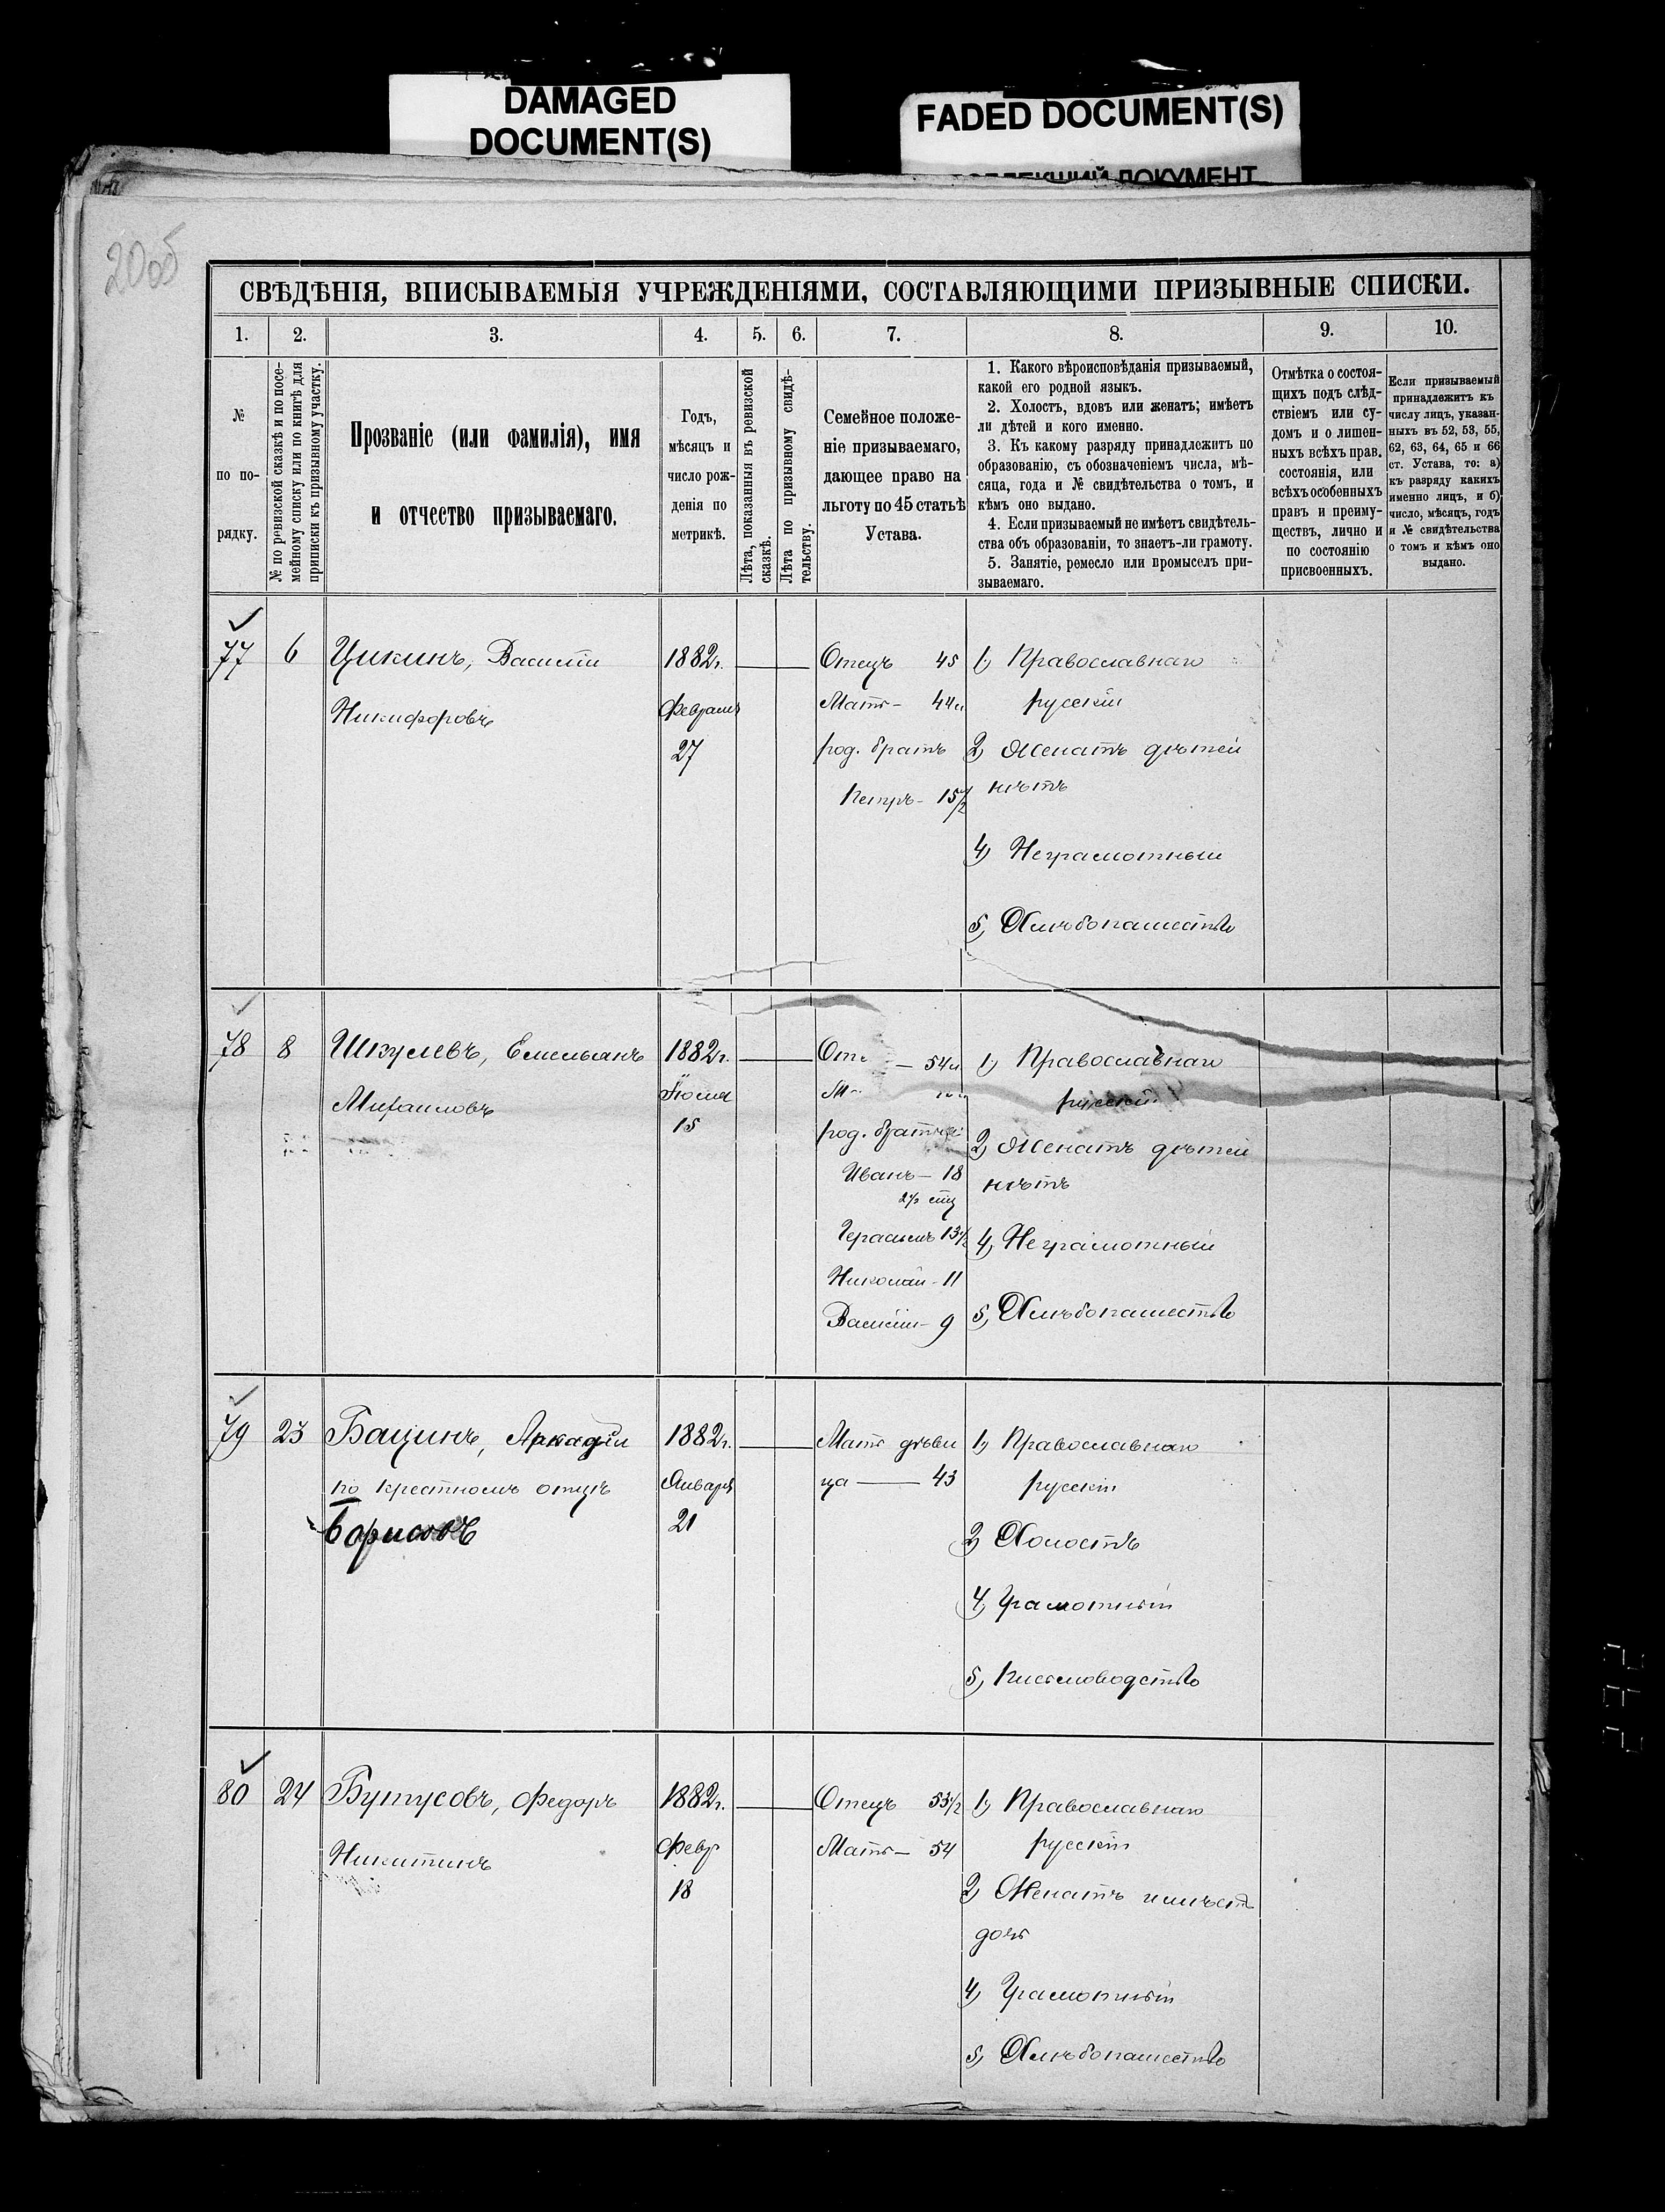 DAMAGED
DOCUMENT(S)
FADED DOCUMENT(S)
ДОКУМЕНТ
20об
СВѢДѢНІЯ, ВПИСЫВАЕМЫЯ УЧРЕЖДЕНІЯМИ, СОСТАВЛЯЮЩИМИ ПРИЗЫВНЫЕ СПИСКИ.
1. 2. 3. 4. 5. 6. 7. 8. 9. 10.
№
по по-
рядку.
№ по ревизской сказкѣ и по посе-
мейному списку или по книгѣ для
приписки къ призывному участку.
Прозваніе (или фамилія), имя
и отчество призываемаго.
Годъ,
мѣсяцъ и
число рож-
денія по
метрикѣ.
Лѣта, показанныя въ ревизской
сказкѣ.
Лѣта по призывному свидѣ-
тельству.
Семейное положе-
ніе призываемаго,
дающее право на
льготу по 45 статьѣ
Устава.
1. Какого вѣроисповѣданія призываемый,
какой его родной языкъ.
2. Холостъ, вдовъ или женатъ; имѣетъ
ли дѣтей и кого именно.
3. Къ какому разряду принадлежитъ по
образованію, съ обозначеніемъ числа, мѣ-
сяца, года и № свидѣтельства о томъ, и
кѣмъ оно выдано.
4. Если призываемый не имѣетъ свидѣтель-
ства объ образованіи, то знаетъ-ли грамоту.
5. Занятіе, ремесло или промыселъ при-
зываемаго.
Отмѣтка о состоя-
щихъ подъ слѣд-
ствіемъ или су-
домъ и о лишен-
ныхъ всѣхъ прав.
состоянія, или
всѣхъ особенныхъ
правъ и преиму-
ществъ, лично и
по состоянію
присвоенныхъ.
Если призываемый
принадлежитъ къ
числу лицъ, указан-
ныхъ въ 52, 53, 55,
62, 63, 64, 65 и 66
ст. Устава, то: а)
къ разряду какихъ
именно лицъ, и б)
число, мѣсяцъ, годъ
и № свидѣтельства
о томъ и кѣмъ оно
выдано.
77 6 Цикинъ, Василій
Никифоровъ
1882г.
Февраля
27
Отецъ 45
Мать - 44
род. братъ
Петръ - 15 1/2
1) Православнаго
русскій
2) Женатъ дѣтей
нѣтъ
4) Неграмотный
5) Хлѣбопашество
78 8 Шкулевъ, Емельянъ
Михаиловъ
1882г.
Іюля
15
От — 54
М
род. братья
Иванъ — 18
Герасимъ 13 1/2
Николай - 11
Василій - 9
1) Православнаго
русскій
2) Женатъ дѣтей
нѣтъ
4) Неграмотный
5) Хлѣбопашество
79 23 Бацинъ, Аркадій
по крестномъ отцѣ
Борисовъ
1882г.
Января
21
Мать дѣви
ца — 43
1) Православнаго
русскій
2) Холостъ
4) Грамотный
5) Письмоводство
80 24 Бутусовъ, Федоръ
Никитинъ
1882г.
Февр
18
Отецъ 53 1/2
Мать — 54
1) Православнаго
русскій
2) Женатъ имѣетъ
дочь
4) Грамотный
5) Хлѣбопашество